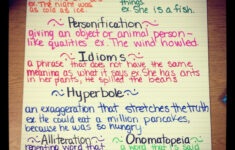 ex. The night was
as cold as ice.
She is a fish.
Personification
giving an object or animal person-
like qualities ex. The wind howled.
Idioms
a phrase that does not have the same
meaning as what it says ex. She has ants
in her pants, He spilled the beans
Hyperbole
an exaggeration that stretches the truth
ex. He could eat a million pancakes,
because he was so hungry
Alliteration
repeating that
Onomatopoeia
a word that is said